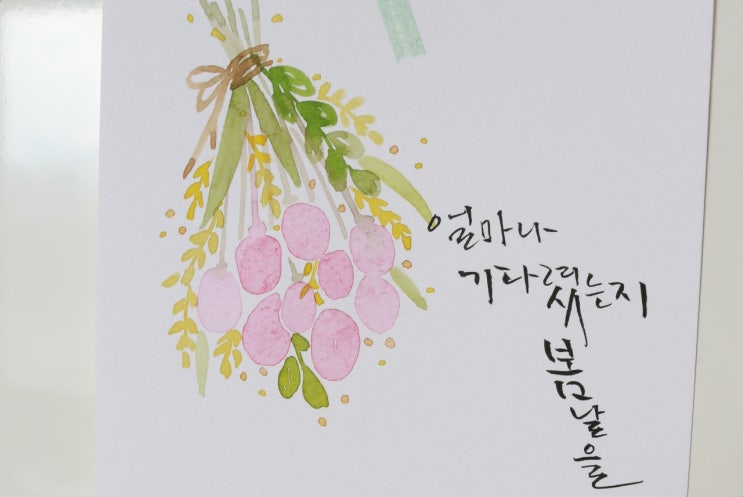 얼마나
기다렸는지
봄
날
을